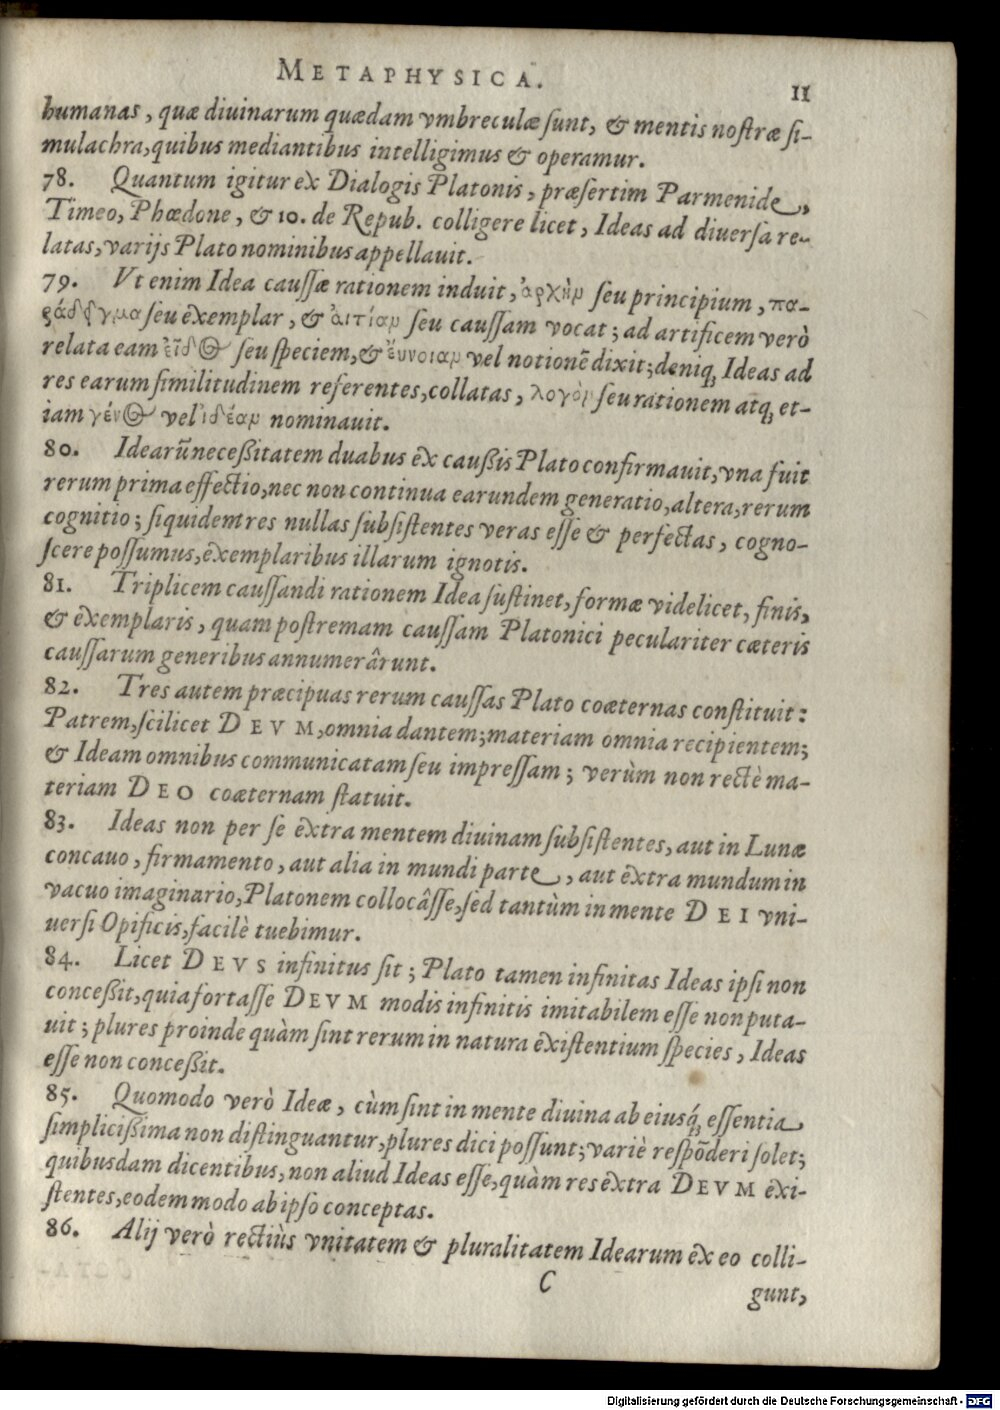 METAPHYSICA.
11
humanas, quæ diuinarum quædam vmbreculæ sunt, & mentis nostræ si-
mulachra, quibus mediantibus intelligimus & operamur.
78. Quantum igitur ex Dialogis Platonis, præsertim Parmenide,
Timeo, Phœdone, & 10. de Repub. colligere licet, Ideas ad diuersa re-
latas, varijs Plato nominibus appellauit.
79. Vt enim Idea caussæ rationem induit, ἀρχὴν seu principium, πα-
ράδειγμα seu exemplar, & ἀιτίαν seu caussam vocat; ad artificem verò
relata eam εἶδος seu speciem, & ἔυνοιαν vel notionẽ dixit; deniq; Ideas ad
res earum similitudinem referentes, collatas, λογὸν seu rationem atq; et-
iam γένος vel ἰδέαν nominauit.
80. Idearũ necessitatem duabus ex caussis Plato confirmauit, vna fuit
rerum prima effectio, nec non continua earundem generatio, altera, rerum
cognitio; siquidem res nullas subsistentes veras esse & perfectas, cogno-
scere possumus, exemplaribus illarum ignotis.
81. Triplicem caussandi rationem Idea sustinet, formæ videlicet, finis,
& exemplaris, quam postremam caussam Platonici peculariter cæteris
caussarum generibus annumerârunt.
82. Tres autem præcipuas rerum caussas Plato coæternas constituit:
Patrem, scilicet DEVM, omnia dantem; materiam omnia recipientem;
& Ideam omnibus communicatam seu impressam; verùm non rectè ma-
teriam DEO coæternam statuit.
83. Ideas non per se extra mentem diuinam subsistentes, aut in Lunæ
concauo, firmamento, aut alia in mundi parte, aut extra mundum in
vacuo imaginario, Platonem collocâsse, sed tantùm in mente DEI vni-
uersi Opificis, facilè tuebimur.
84. Licet DEVS infinitus sit; Plato tamen infinitas Ideas ipsi non
concessit, quia fortasse DEVM modis infinitis imitabilem esse non puta-
uit; plures proinde quàm sint rerum in natura existentium species, Ideas
esse non concessit.
85. Quomodo verò Ideæ, cùm sint in mente diuina ab eiusq́; essentia
simplicissima non distinguantur, plures dici possunt; variè respõderi solet;
quibusdam dicentibus, non aliud Ideas esse, quàm res extra DEVM exi-
stentes, eodem modo ab ipso conceptas.
86. Alij verò rectiùs vnitatem & pluralitatem Idearum ex eo colli-
C
gunt,
Digitalisierung gefördert durch die Deutsche Forschungsgemeinschaft - DFG